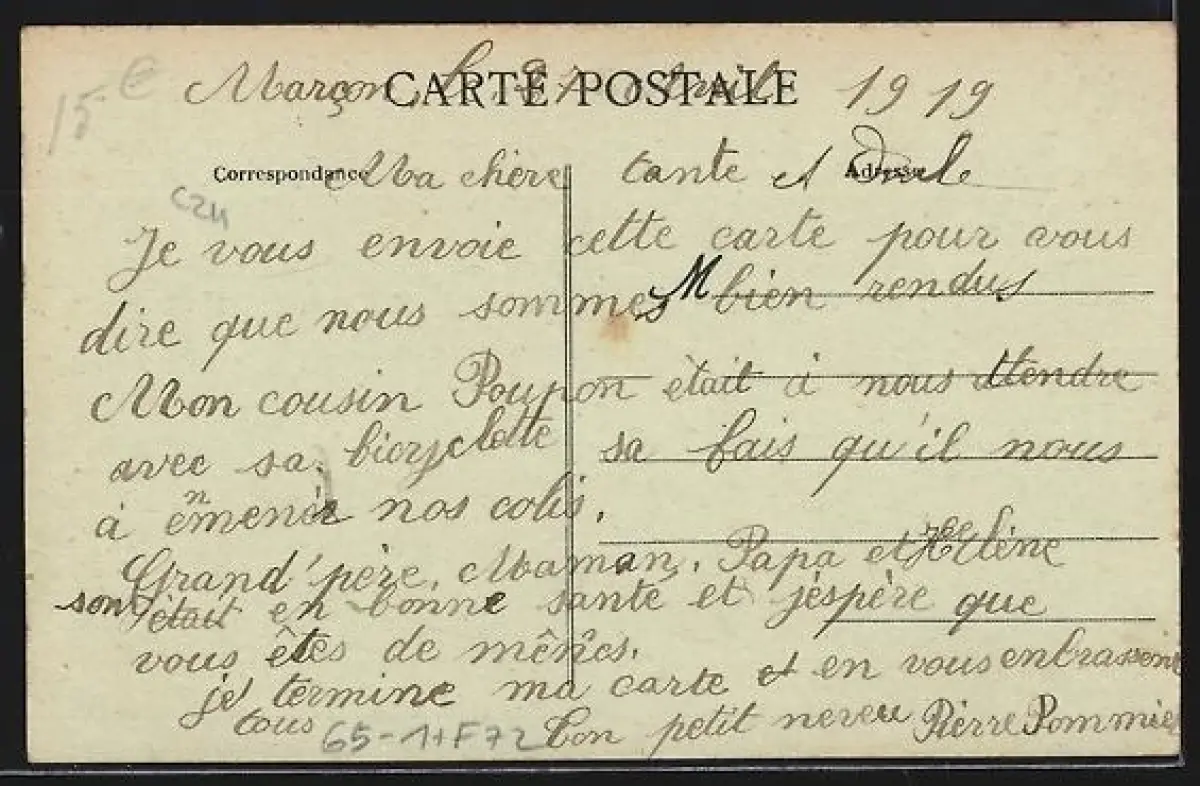 15 €
Marçon le 27 Avril 1919
CARTE POSTALE
Correspondance
Adresse
Ma chère tante et Oncle
C24
Je vous envoie cette carte pour vous
dire que nous sommes bien rendus
M
Mon cousin Poupon était à nous attendre
avec sa bicyclette sa fais qu'il nous
à enmener nos colis.
Grand'père, Maman, Papa et Hélène
sont était en bonne santé et j'éspère que
vous êtes de mênes.
je termine ma carte et en vous enbrassent
tous
65-1+F72
Ton petit neveu Pièrre Pommier